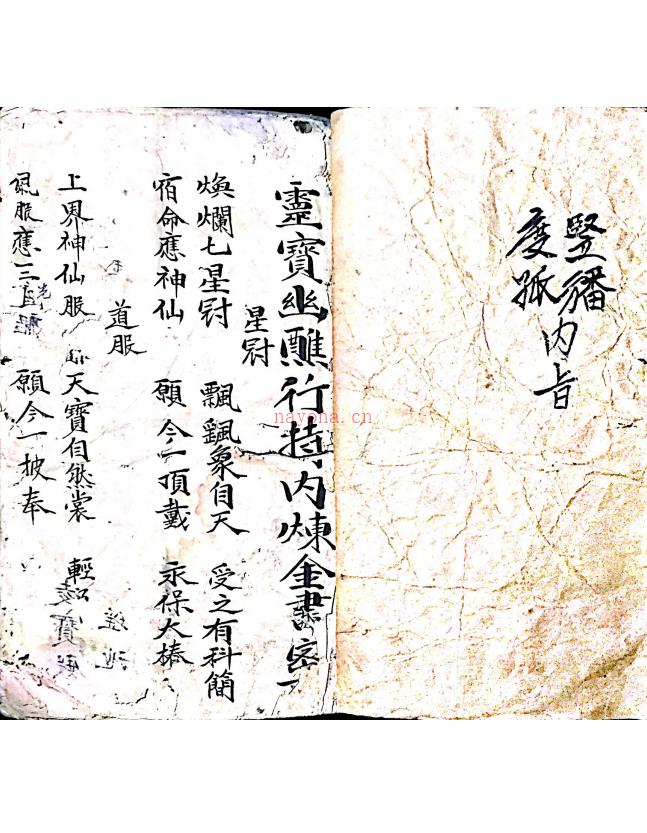 豎旛
度孤
內旨
靈寶幽醮行持內煉金書密
星冠
煥爛七星冠 飄飄象自天 受之有科簡
宿命應神仙 願今一頂戴 永保大椿
道服
上界神仙服 天寶自然裳 輕
服應三 願今一披奉
nayona.cn